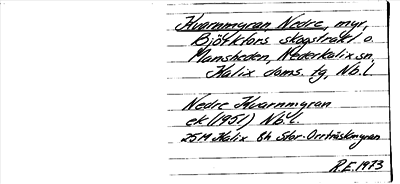 Kvarnmyran Nedre, myr,
Björkfors skogstrakt o.
Månsheden, Nederkalix sn,
Kalix doms. tg, Nb.l.
Nedre Kvarnmyran
ek (1951) Nb.l.
25M Kalix 8h Stor-Orrträskmyran
R.E. 1973